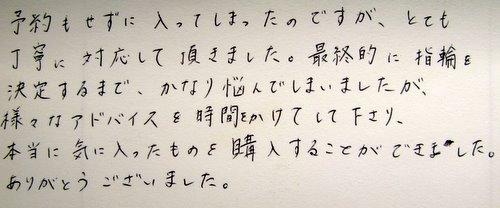 予約もせずに入ってしまったのですが、とても
丁寧に対応して頂きました。最終的に指輪を
決定するまで、かなり悩んでしまいましたが、
様々なアドバイスを時間をかけてして下さり、
本当に気に入ったものを購入することができました。
ありがとうございました。